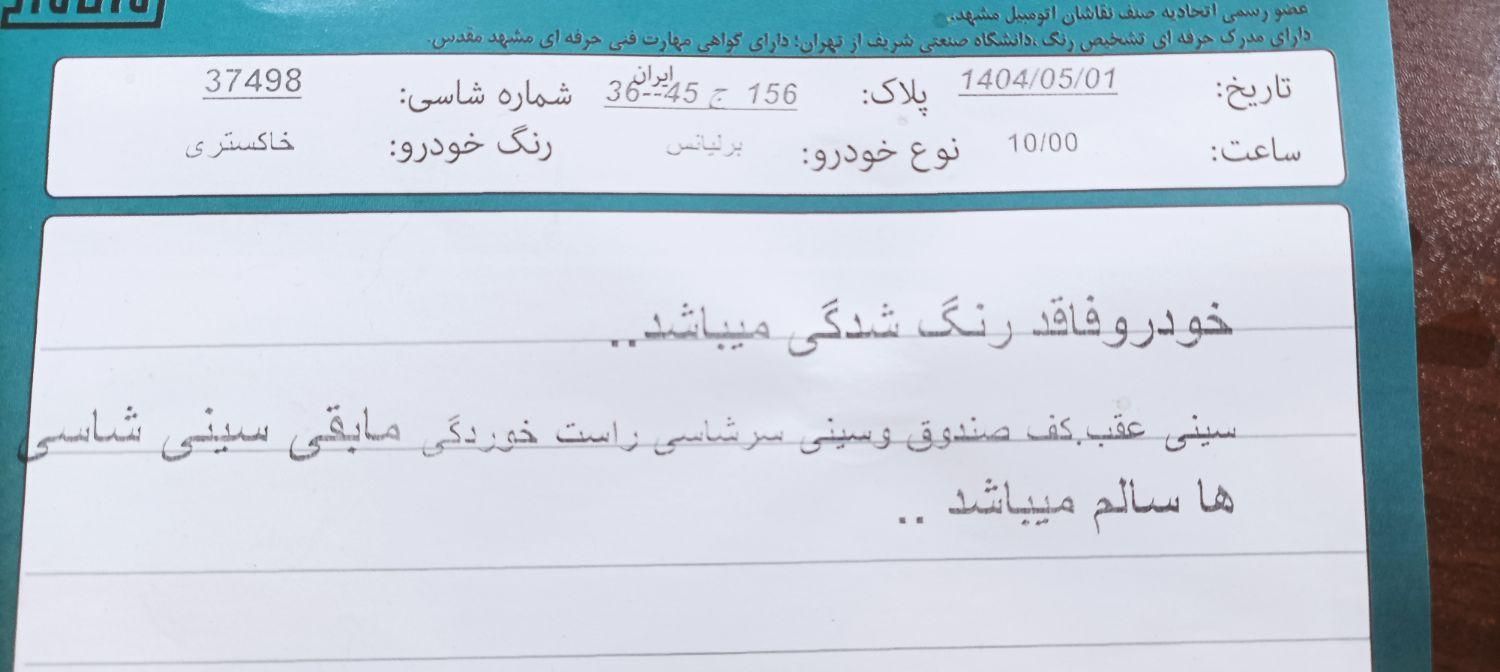 عضو رسمی اتحادیه صنف نقاشان اتومبیل مشهد.
دارای مدرک حرفه ای تشخیص رنگ ،دانشگاه صنعتی شریف از تهران؛ دارای گواهی مهارت فنی حرفه ای مشهد مقدس.
تاریخ: 1404/05/01 پلاک: 156 ج 45--36 ایران شماره شاسی: 37498
ساعت: 10/00 نوع خودرو: برلیانس رنگ خودرو: خاکستری
خودروفاقد رنگ شدگی میباشد..
سینی عقب.کف صندوق وسینی سرشاسی راست خوردگی مابقی سینی شاسی
ها سالم میباشد ..